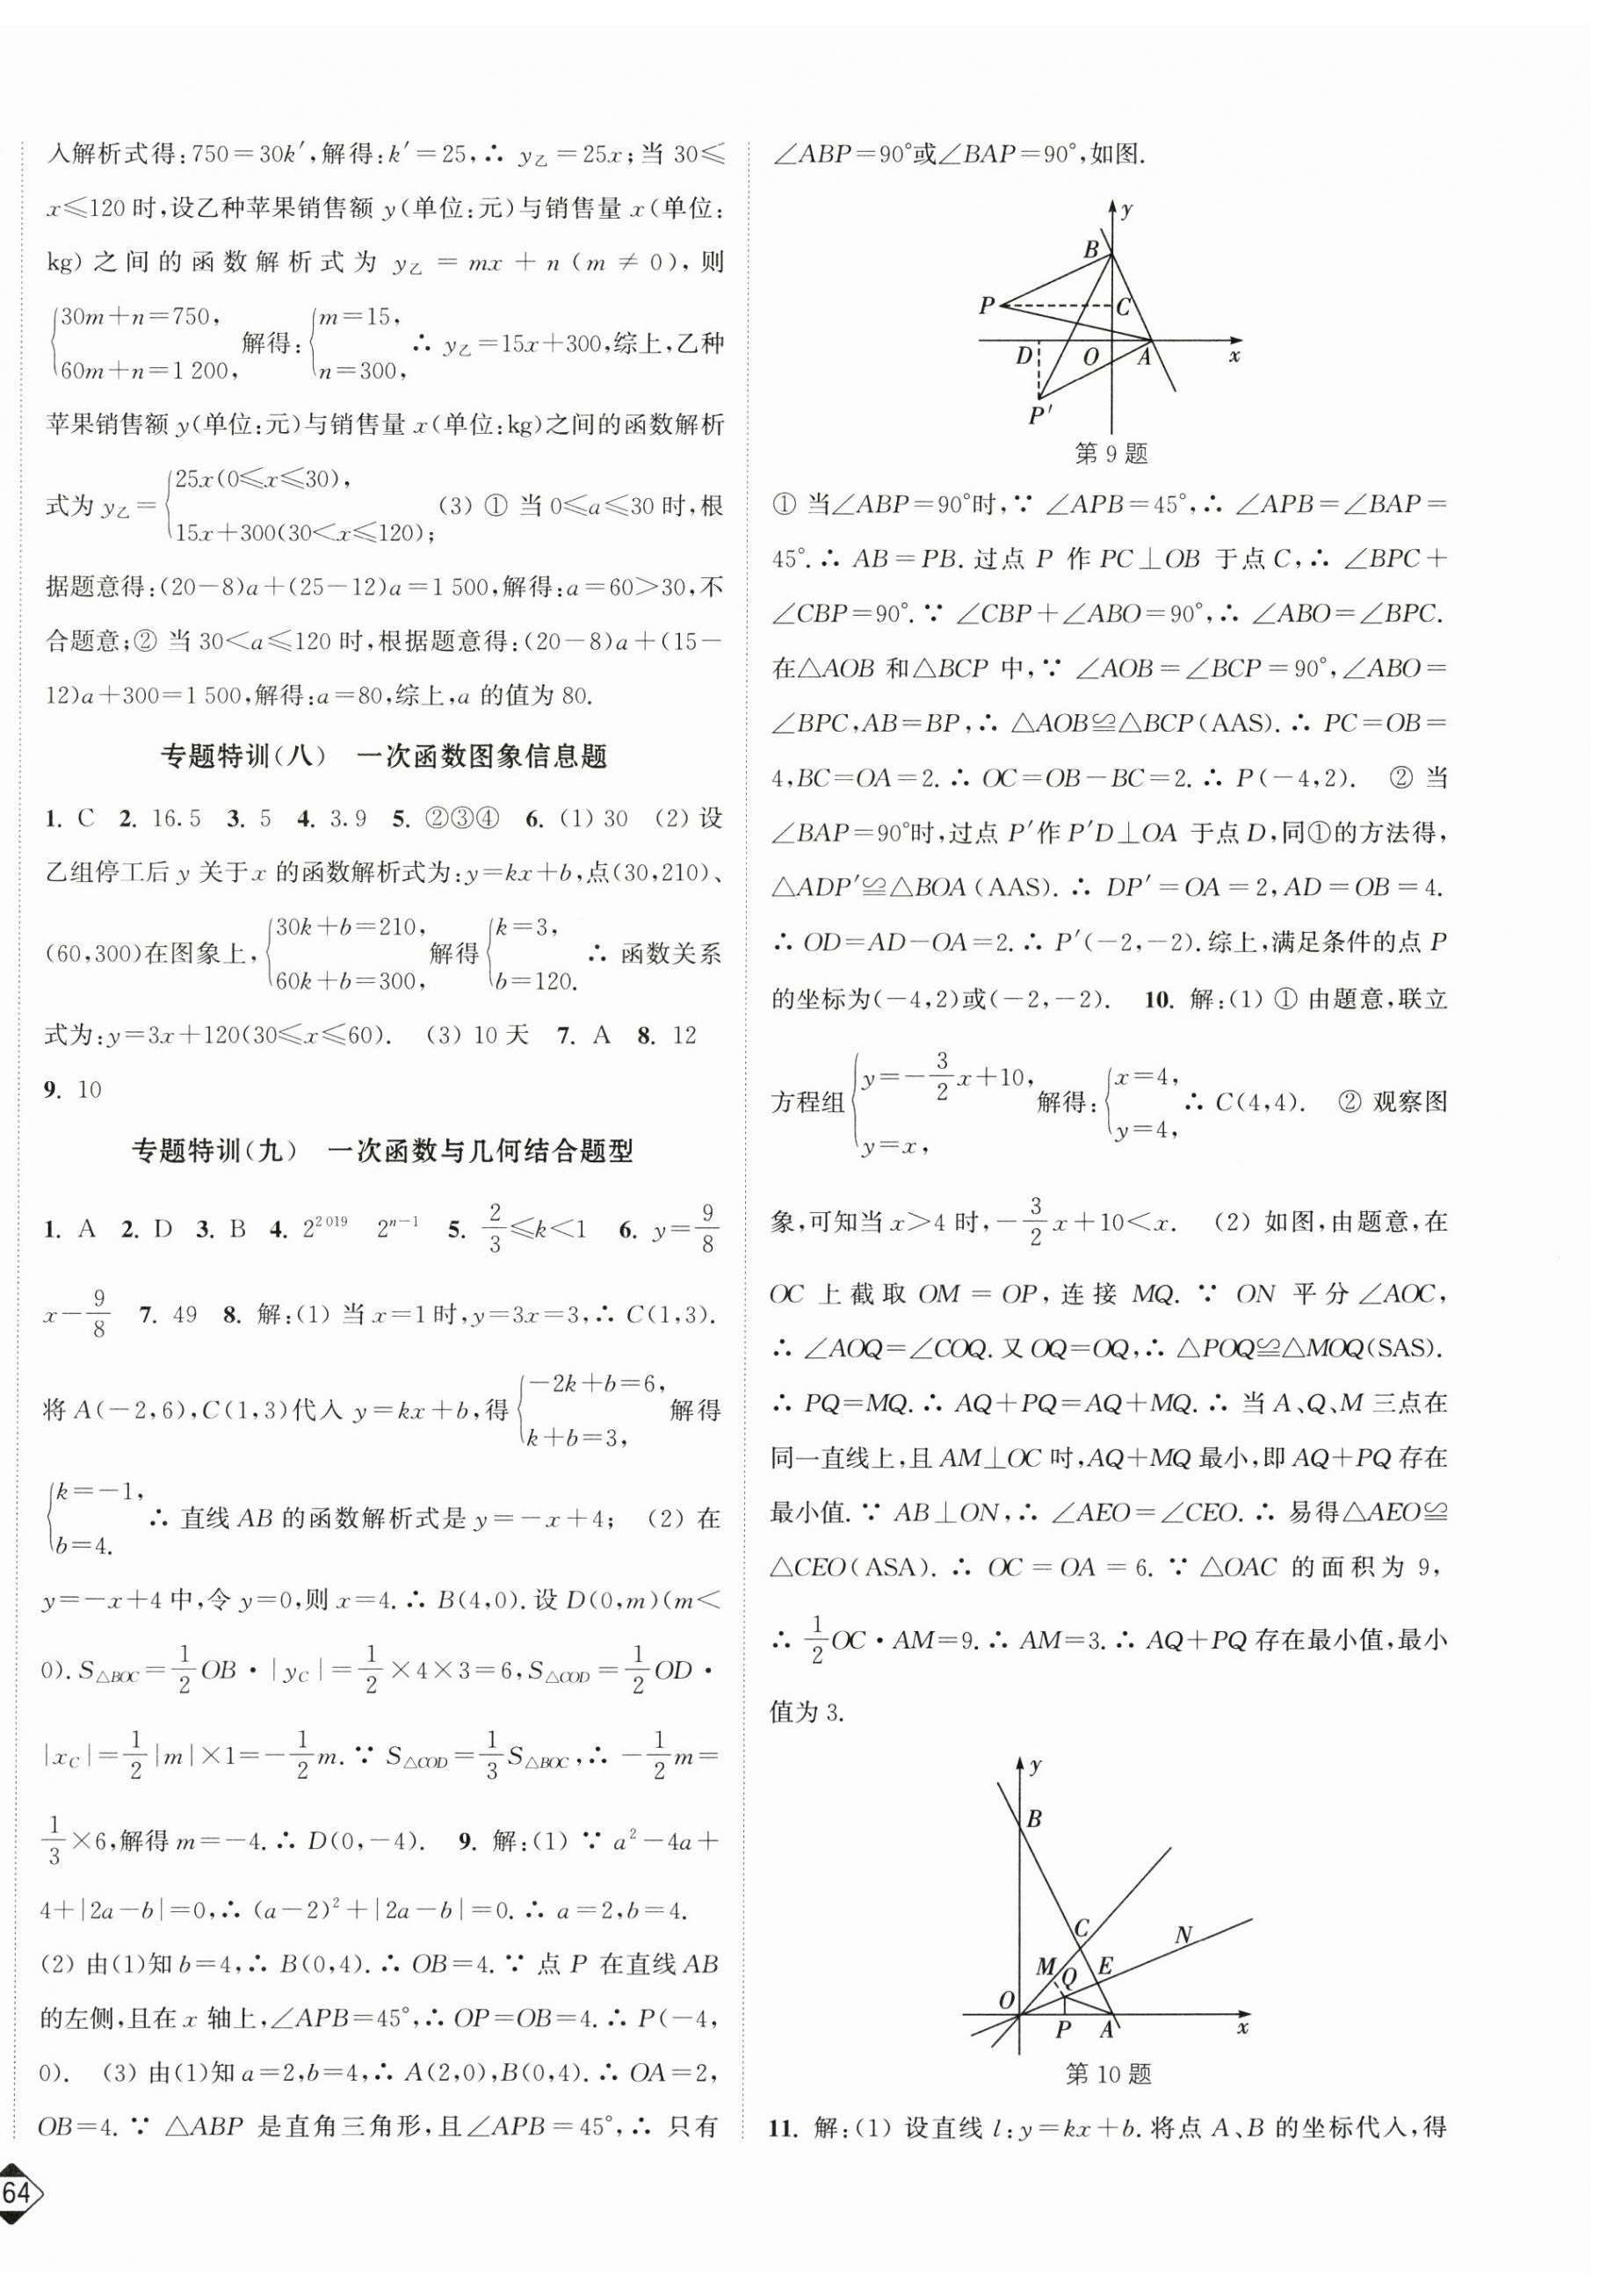 入解析式得:750=30k′,解得:k′=25,∴ y乙=25x;当 30≤
x≤120 时,设乙种苹果销售额 y(单位:元)与销售量 x(单位:
kg)之间的函数解析式为 y乙=mx+n(m≠0),则
{30m+n=750, 60m+n=1 200, 解得:{m=15, n=300, ∴ y乙=15x+300,综上,乙种
苹果销售额 y(单位:元)与销售量 x(单位:kg)之间的函数解析
式为 y乙={25x(0≤x≤30), 15x+300(30<x≤120); (3) ① 当 0≤a≤30 时,根
据题意得:(20-8)a+(25-12)a=1 500,解得:a=60>30,不
合题意;② 当 30<a≤120 时,根据题意得:(20-8)a+(15-
12)a+300=1 500,解得:a=80,综上,a 的值为 80.
专题特训(八) 一次函数图象信息题
1. C 2. 16.5 3. 5 4. 3.9 5. ②③④ 6. (1) 30 (2) 设
乙组停工后 y 关于 x 的函数解析式为:y=kx+b,点(30,210)、
(60,300)在图象上,{30k+b=210, 60k+b=300, 解得{k=3, b=120. ∴ 函数关系
式为:y=3x+120(30≤x≤60). (3) 10 天 7. A 8. 12
9. 10
专题特训(九) 一次函数与几何结合题型
1. A 2. D 3. B 4. 2^{2 019} 2^{n-1} 5. 2/3≤k<1 6. y=9/8
x-9/8 7. 49 8. 解:(1) 当 x=1 时,y=3x=3,∴ C(1,3).
将 A(-2,6),C(1,3)代入 y=kx+b,得{-2k+b=6, k+b=3, 解得
{k=-1, b=4. ∴ 直线 AB 的函数解析式是 y=-x+4; (2) 在
y=-x+4 中,令 y=0,则 x=4.∴ B(4,0).设 D(0,m)(m<
0).S△BOC=1/2 OB·|yC|=1/2×4×3=6,S△COD=1/2 OD·
|xC|=1/2|m|×1=-1/2 m.∵ S△COD=1/3 S△BOC,∴ -1/2 m=
1/3×6,解得 m=-4.∴ D(0,-4). 9. 解:(1) ∵ a²-4a+
4+|2a-b|=0,∴ (a-2)²+|2a-b|=0.∴ a=2,b=4.
(2) 由(1)知 b=4,∴ B(0,4).∴ OB=4.∵ 点 P 在直线 AB
的左侧,且在 x 轴上,∠APB=45°,∴ OP=OB=4.∴ P(-4,
0). (3) 由(1)知 a=2,b=4,∴ A(2,0),B(0,4).∴ OA=2,
OB=4.∵ △ABP 是直角三角形,且∠APB=45°,∴ 只有
64
∠ABP=90°或∠BAP=90°,如图.
y
B
P
C
D
O
A
x
P′
第 9 题
① 当∠ABP=90°时,∵ ∠APB=45°,∴ ∠APB=∠BAP=
45°.∴ AB=PB.过点 P 作 PC⊥OB 于点 C,∴ ∠BPC+
∠CBP=90°.∵ ∠CBP+∠ABO=90°,∴ ∠ABO=∠BPC.
在△AOB 和△BCP 中,∵ ∠AOB=∠BCP=90°,∠ABO=
∠BPC,AB=BP,∴ △AOB≌△BCP(AAS).∴ PC=OB=
4,BC=OA=2.∴ OC=OB-BC=2.∴ P(-4,2). ② 当
∠BAP=90°时,过点 P′作 P′D⊥OA 于点 D,同①的方法得,
△ADP′≌△BOA(AAS).∴ DP′=OA=2,AD=OB=4.
∴ OD=AD-OA=2.∴ P′(-2,-2).综上,满足条件的点 P
的坐标为(-4,2)或(-2,-2). 10. 解:(1) ① 由题意,联立
方程组{y=-3/2 x+10, y=x, 解得:{x=4, y=4, ∴ C(4,4). ② 观察图
象,可知当 x>4 时,-3/2 x+10<x. (2) 如图,由题意,在
OC 上截取 OM=OP,连接 MQ.∵ ON 平分∠AOC,
∴ ∠AOQ=∠COQ.又 OQ=OQ,∴ △POQ≌△MOQ(SAS).
∴ PQ=MQ.∴ AQ+PQ=AQ+MQ.∴ 当 A、Q、M 三点在
同一直线上,且 AM⊥OC 时,AQ+MQ 最小,即 AQ+PQ 存在
最小值.∵ AB⊥ON,∴ ∠AEO=∠CEO.∴ 易得△AEO≌
△CEO(ASA).∴ OC=OA=6.∵ △OAC 的面积为 9,
∴ 1/2 OC·AM=9.∴ AM=3.∴ AQ+PQ 存在最小值,最小
值为 3.
y
B
C
N
M
Q
E
O
P
A
x
第 10 题
11. 解:(1) 设直线 l:y=kx+b.将点 A、B 的坐标代入,得